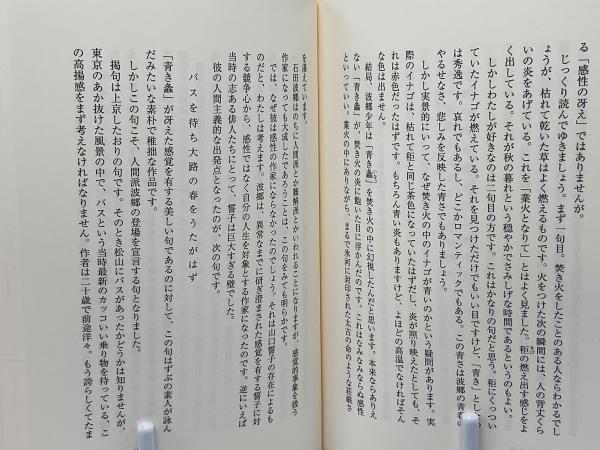 る「感性の冴え」ではありませんが。
じっくり読んでゆきましょう。まず一句目。焚き火をしたことのある人ならわかるでし
ょうが、枯れて乾いた草はよく燃えるものです。火をつけた次の瞬間には、人の背丈くら
いの炎をあげている。これを「業火となりて」とはよく見た。秬の燃え出す感じをよ
く出している。それが秋の暮れという穏やかでさみしげな時間であるというのもよい。
しかしわたしが好きなのは二句目の方です。これはかなりの句だと思う。秬にくっつい
ていたイナゴが燃えている。それを見つけただけでもいい目ですけど、「青き」としたの
は秀逸です。哀れでもあるし、どこかロマンティックでもある。この青さは波郷の青春の
やるせなさ、悲しみを反映した青さでもありましょう。
しかし実景的にいって、なぜ焚き火の中のイナゴが青いのかという疑問があります。実
際のイナゴは、枯れて秬と同じ茶色になっていたはずだし、炎が照り映えたとしても、そ
れは赤色だったはずです。もちろん青い炎もありますけど、よほどの高温でなければそん
な色は出ません。
結局、波郷少年は「青き蟲」を焚き火の中に幻視したんだと思います。本来ならありえ
ない「青き蟲」が、焚き火の炎に飽いた目に浮かんだのです。これはなみなみならぬ感性
といっていい。業火の中にありながら、まるで氷河に封印された太古の命のような荘厳さ
を湛えています。
石田波郷はのちに人間派とか難解派とかいわれることになりますが、感覚的事象を扱う
作家になっても大成したであろうことは、この句をみても明らかです。
では、なぜ彼は感性の作家にならなかったのでしょう。それは山口誓子の存在によるも
のだと、わたしは考えます。波郷は、異常なまでに研ぎ澄まされた感覚を有する誓子に対
する競争心から、感性ではなく自分の人生を対象とする作家になったのです。逆にいえば
当時の志ある俳人たちにとって、誓子は巨大すぎる壁でした。
彼の人間主義的な出発点となったのが、次の句です。
バスを待ち大路の春をうたがはず
「青き蟲」が冴えた感覚を有する美しい句であるのに対して、この句はずぶの素人が詠ん
だみたいな素朴で稚拙な作品です。
しかしこの句こそ、人間派波郷の登場を宣言する句となりました。
掲句は上京したおりの句です。そのとき松山にバスがあったかどうかは知りませんが、
東京のあか抜けた風景の中で、バスという当時最新のカッコいい乗り物を待っている、こ
の高揚感をまず考えなければなりません。作者は二十歳で前途洋々。もう誇らしくてたま